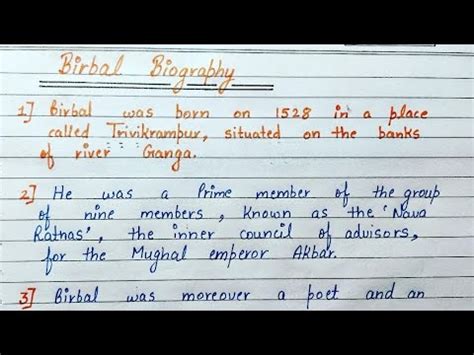 Birbal Biography
1] Birbal was born on 1528 in a place
called Trivikrampur, situated on the banks
of river Ganga.
2] He was a Prime member of the group
of nine members, Known as the 'Nava
Ratnas', the inner council of advisors,
for the Mughal emperor Akbar.
3] Birbal was moreover a poet and an